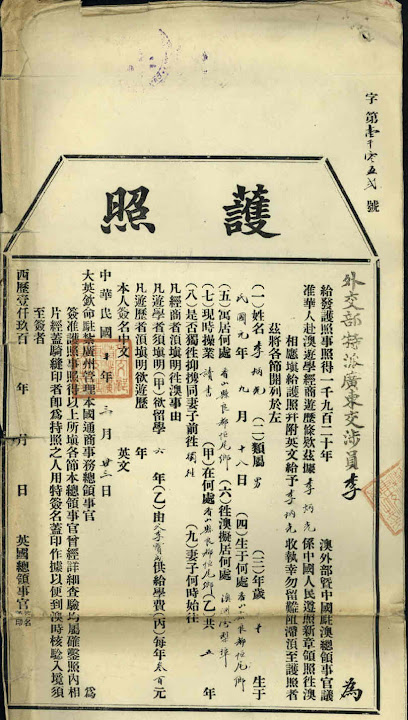 字第壹千零五號
護照
外交部特派廣東交涉員李 為
給發護照事照得一千九百二十年 澳外部暨中國駐澳總領事官議
准華人赴澳遊學經商遊歷條欵茲據 李炳光 係中國人民遵照新章領照徃澳
相應塡給護照幷附英文給予 李炳光 收執幸勿留難阻滯須至護照者
茲將各節開列於左
(一)姓名 李炳光 (二)類屬 男 (三)年歲 十 生于
民國元年九月十八日 (四)生于何處 香山縣良都恒尾鄉
(五)寓居何處 香山縣良都恒尾鄉 (六)徃澳擬居何處 澳洲雪梨埠
(七)現時操業 讀書 (甲)在何處 香山縣良都恒尾鄉 (乙)共 五 年
(八)是否獨徃抑携同妻子前徃 獨徃 (九)妻子何時始往
凡經商者須塡明徃澳事由
凡遊學者須塡明(甲)欲留學 六 年(乙)由 父李成 供給學費(丙)每年 叁百 元
凡遊歷者須塡明欲遊歷 年
本人簽名中文 英文
中華民國十年三月廿三日
大英欽命駐紮廣州管理本國通商事務總領事官 為
簽准護照事照得以上所塡各節本總領事官曾經詳細查驗均屬確鑿照內相
片經蓋騎縫印者卽為持照之人用特簽名蓋印作據以便到澳時核騐入境須
至簽者
西歷壹仟玖百 年 月 日 英國總領事官